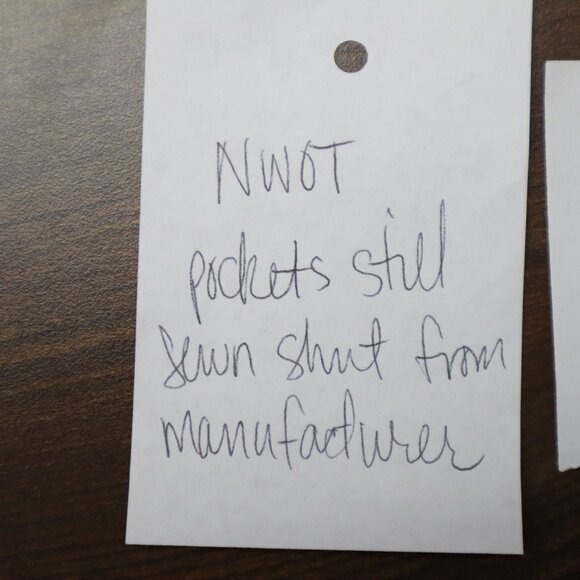 NWOT
pockets still
sewn shut from
manufacturer